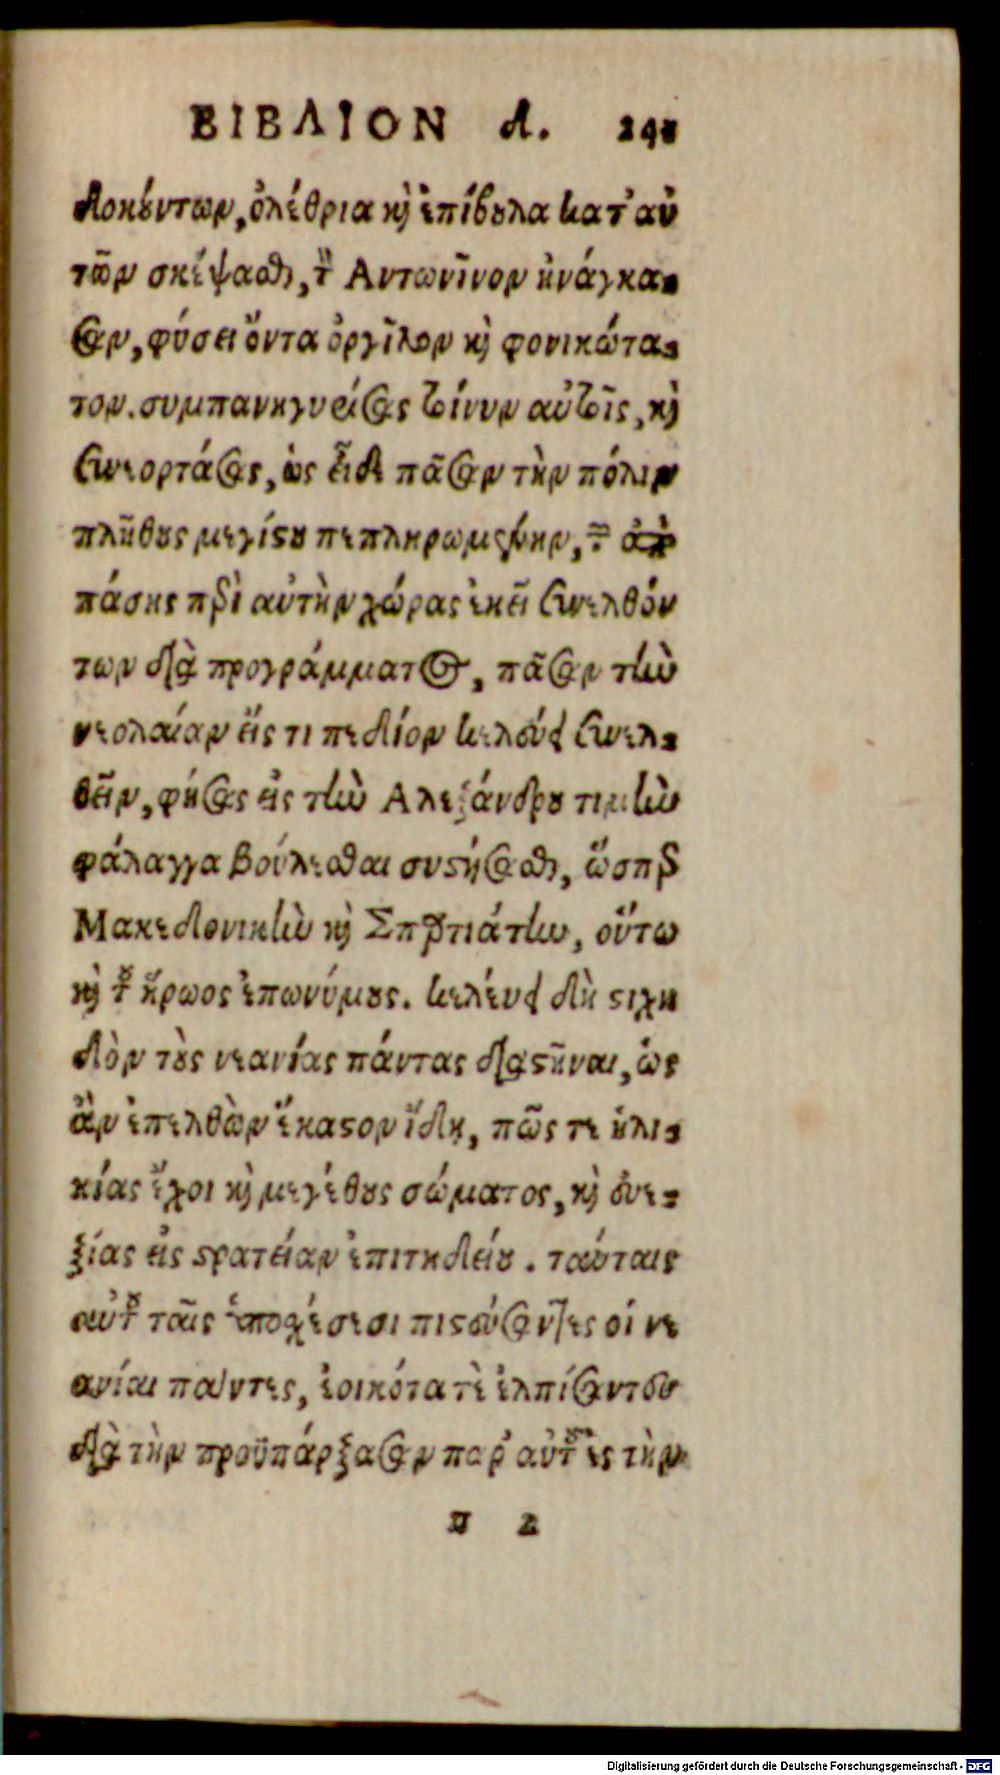 ΒΙΒΛΙΟΝ δ.
δοκούντων, ὀλέθρια καὶ ἐπίβουλα κατ' αὐ
τῶν σκέψασθαι, τὸν Αντωνῖνον ἠνάγκα-
σαν, φύσει ὄντα ὀργῖλον καὶ φονικώτα-
τον. συμπανηγυρίσας τοίνυν αὐτοῖς, καὶ
συνεορτάσας, ὡς εἶδε πᾶσαν τὴν πόλιν
πλήθους μεγίστου πεπληρωμένην, τῶν ἀπὸ
πάσης περὶ αὐτὴν χώρας ἐκεῖ συνελθόν
των διὰ προγράμματος, πᾶσαν τὴν
νεολαίαν εἴς τι πεδίον κελεύει συνελ-
θεῖν, φήσας εἰς τὴν Αλεξάνδρου τιμὴν
φάλαγγα βούλεσθαι συστήσασθαι, ὥσπερ
Μακεδονικὴν καὶ Σπαρτιάτην, οὕτω
καὶ τοῦ ἥρωος ἐπωνύμους. κελεύει δὴ στιχη
δὸν τοὺς νεανίας πάντας διαστῆναι, ὡς
ἂν ἐπελθὼν ἕκαστον ἴδῃ, πῶς τε ἡλι-
κίας ἔχοι καὶ μεγέθους σώματος, καὶ εὐε-
ξίας εἰς στρατείαν ἐπιτηδείου. ταύταις
αὐτοῦ ταῖς ὑποσχέσεσι πιστεύσαντες οἱ νε
ανίαι πάντες, ἐοικότα τὲ ἐλπίσαντες
διὰ τὴν προϋπάρξασαν παρ' αὐτοῦ ἐς τὴν
π 2
Digitalisierung gefördert durch die Deutsche Forschungsgemeinschaft - DFG